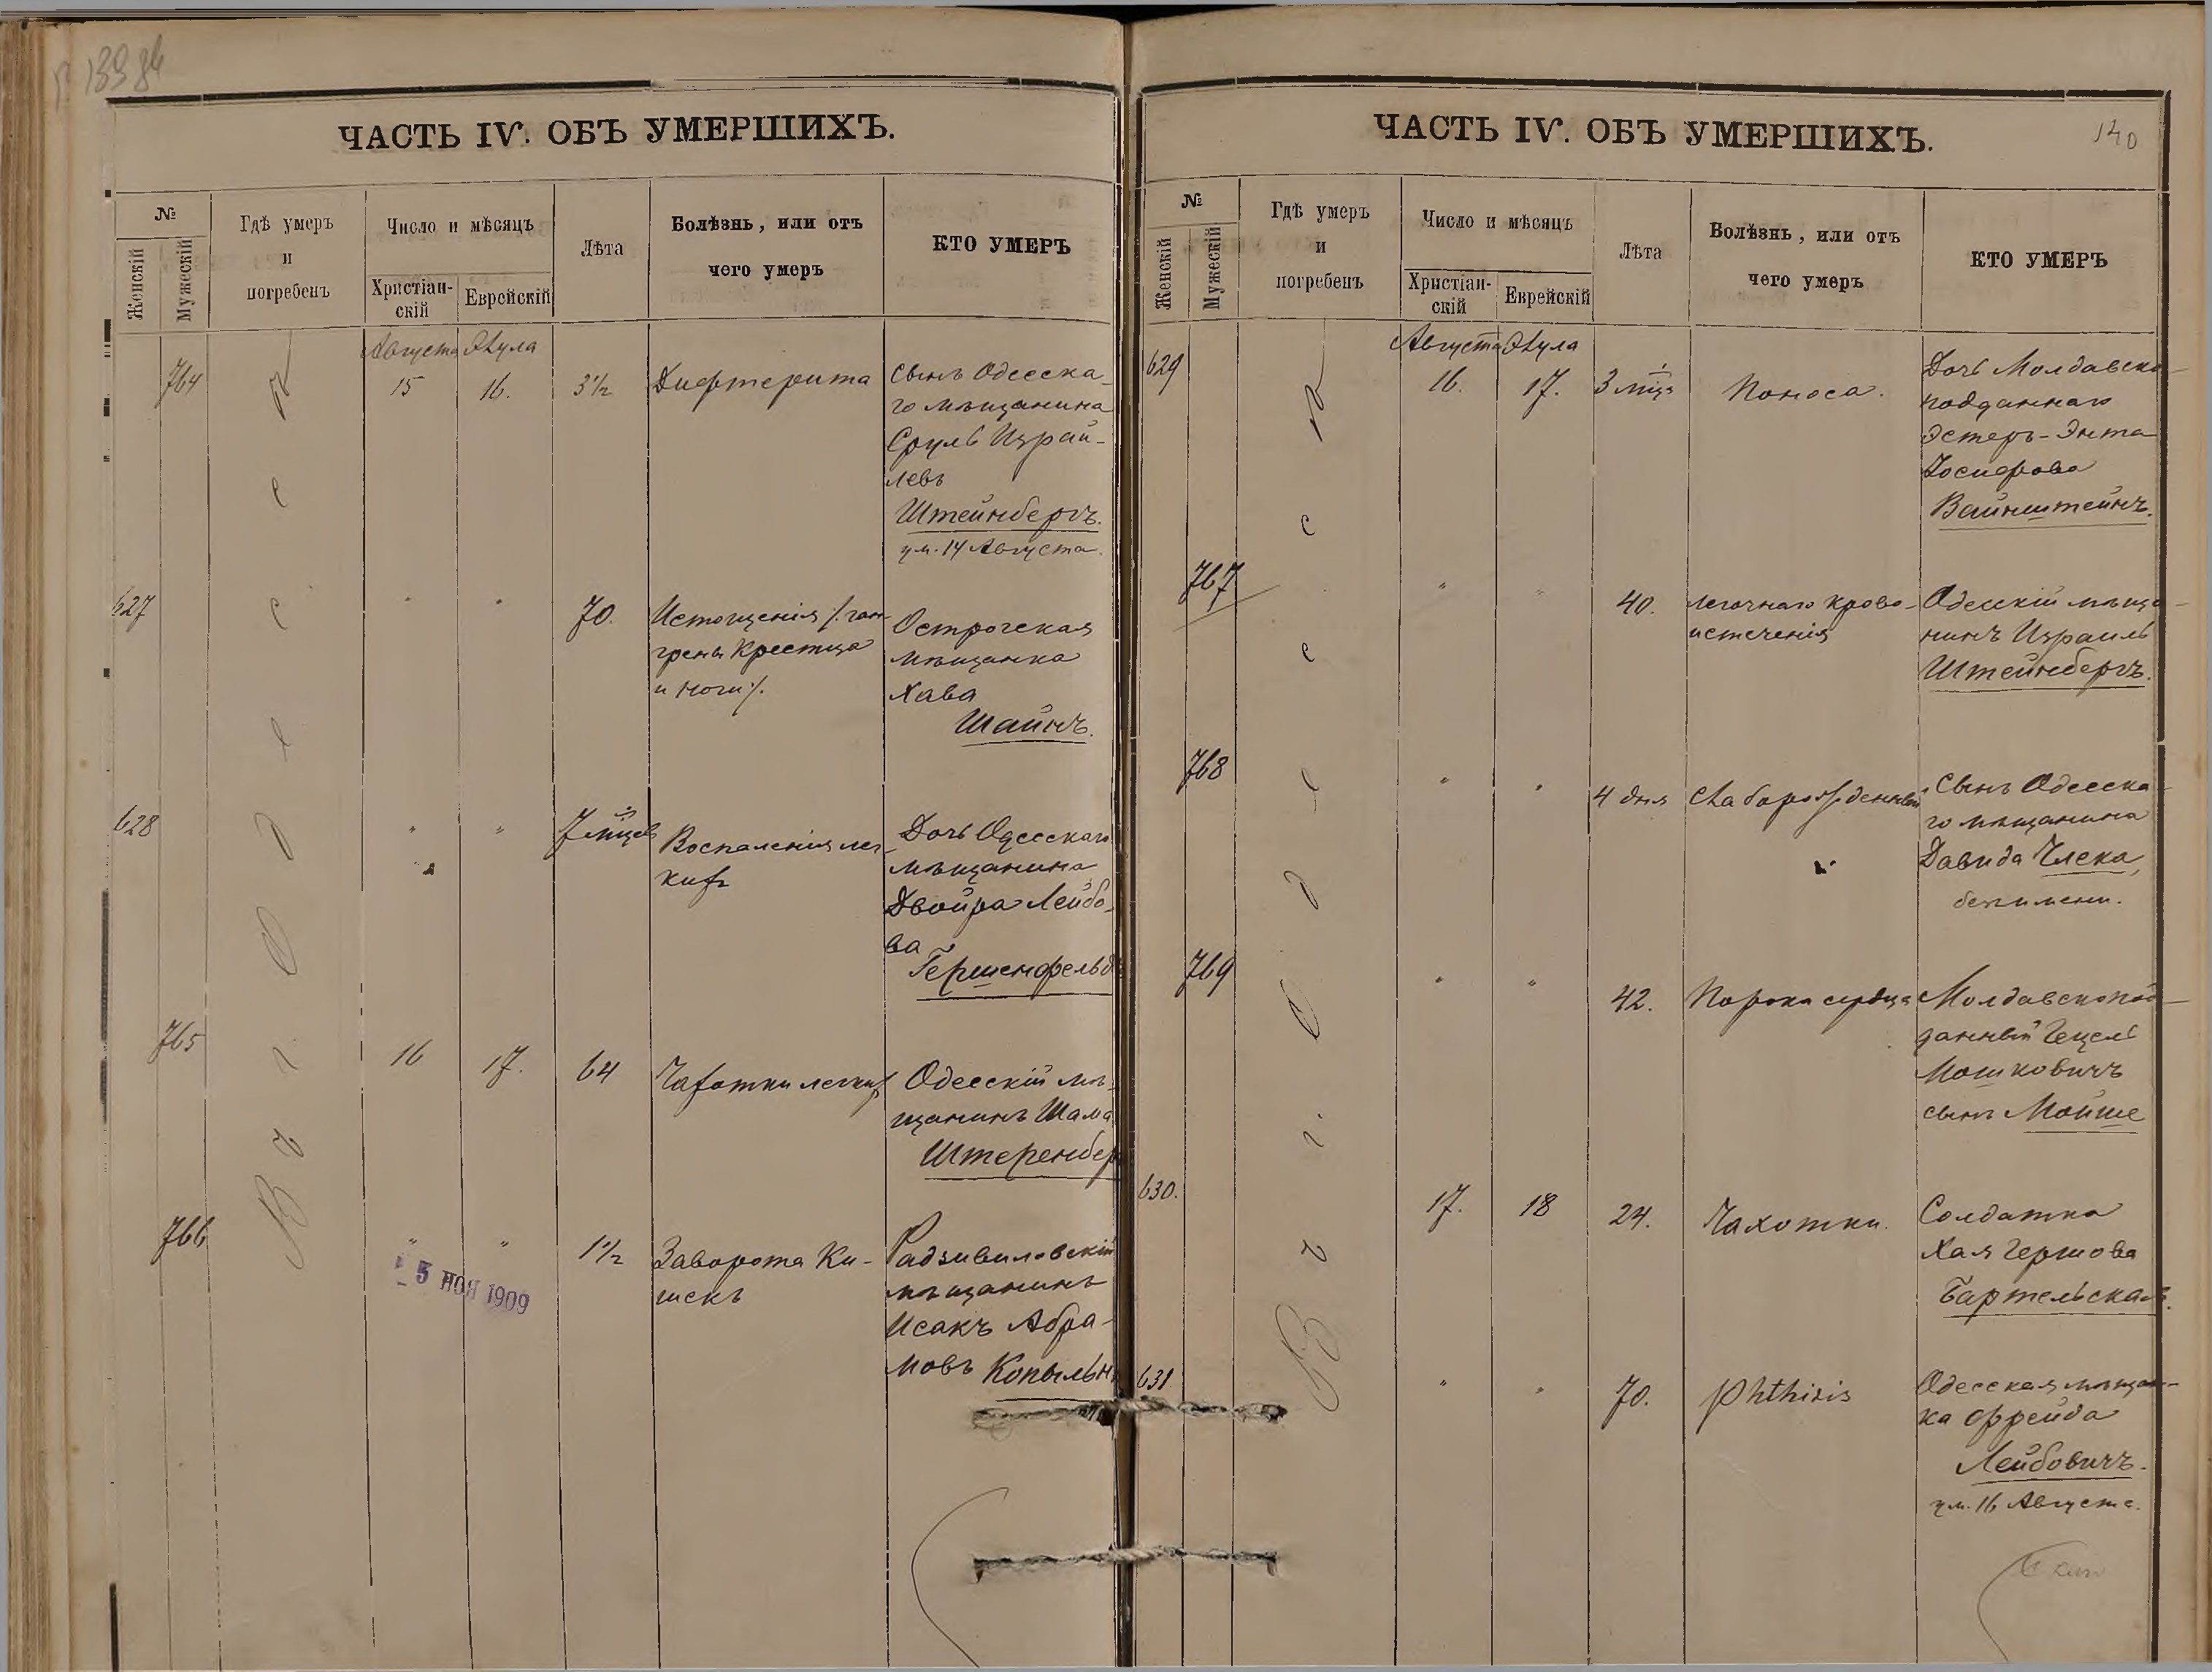 139 об
ЧАСТЬ IV. ОБЪ УМЕРШИХЪ.
№
Женскій
Мужескій
Гдѣ умеръ
и
погребенъ
Число и мѣсяцъ
Христіан-
скій
Еврейскій
Лѣта
Болѣзнь, или отъ
чего умеръ
КТО УМЕРЪ
Августа Элула
764
15
16.
3½
Дифтерита
Сынъ Одесска-
го мѣщанина
Сруль Израи-
левъ
Штейнбергъ.
ум. 14 Августа.
В г. Одессе
627
"
"
70.
Истощенія /. ган-
грены крестца
и ноги ./.
Острогская
мѣщанка
Хава
Шайнъ.
628
"
"
7 мцевъ
Воспаленія лег
кихъ
Дочь Одесскаго
мѣщанина
Двойра Лейбо-
ва
Гершенфельд
765
16
17.
64
Чахотки легкихъ
Одесскій мѣ-
щанинъ Шама
Штеренбер
766
"
"
1½
Заворота Ки-
шекъ
Радзивиловскій
мѣщанинъ
Исакъ Абра-
мовъ Копыльн
5 НОЯ 1909
140
ЧАСТЬ IV. ОБЪ УМЕРШИХЪ.
№
Женскій
Мужескій
Гдѣ умеръ
и
погребенъ
Число и мѣсяцъ
Христіан-
скій
Еврейскій
Лѣта
Болѣзнь, или отъ
чего умеръ
КТО УМЕРЪ
Августа Элула
629
16.
17.
3 мца
Поноса.
Дочь Молдавско-
подданнаго
Эстеръ-Энта
Іосифова
Вайнштейнъ.
В г. Одессе
767
"
"
40.
Легочнаго крово-
истеченія
Одесскій мѣща-
нинъ Израиль
Штейнбергъ.
768
"
"
4 дня
Слаборожденный
Сынъ Одесска-
го мѣщанина
Давида Члека,
безъ имени.
769
"
"
42.
Порока сердца
Молдавскопод-
данный Гецель
Мошковичъ
сынъ Мойше
630.
17.
18
24.
Чахотки.
Солдатка
Хая Гершова
Бартельская.
631
"
"
70.
Phthisis
Одесская мѣщан-
ка Фрейда
Лейбовичъ.
ум. 16 Августа.